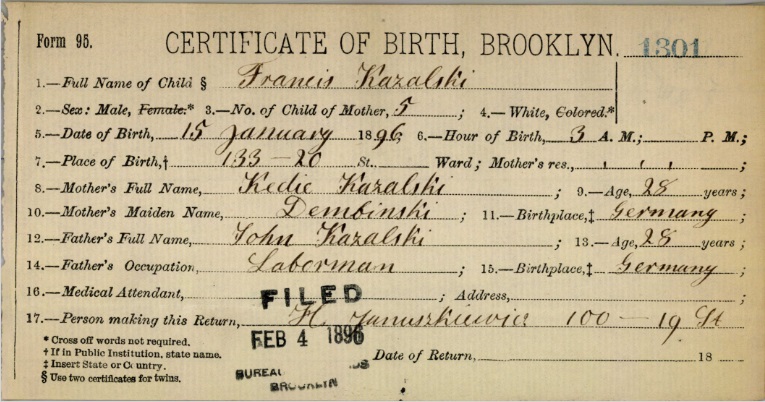 Form 95. CERTIFICATE OF BIRTH, BROOKLYN. 1301
1.—Full Name of Child § Francis Kazalski
2.—Sex: Male, Female.* 3.—No. of Child of Mother, 5 ; 4.— White, Colored.*
5.—Date of Birth, 15 January 1896; 6.—Hour of Birth, 3 A. M.; P. M.;
7.—Place of Birth,† 133 — 20 St. Ward; Mother's res., , , , ;
8.—Mother's Full Name, Kedie Kazalski ; 9.—Age, 28 years;
10.—Mother's Maiden Name, Dembinski ; 11.—Birthplace,‡ Germany ;
12.—Father's Full Name, John Kazalski ; 13.—Age, 28 years;
14.—Father's Occupation, Laborman ; 15.—Birthplace,‡ Germany ;
16.—Medical Attendant, ; Address, ;
FILED
17.—Person making this Return, H. Januszkiewic 100 — 19 St
* Cross off words not required.
FEB 4 1896
† If in Public Institution, state name.
Date of Return, 18
‡ Insert State or Country.
§ Use two certificates for twins.
BUREAU DS
BROOKLYN